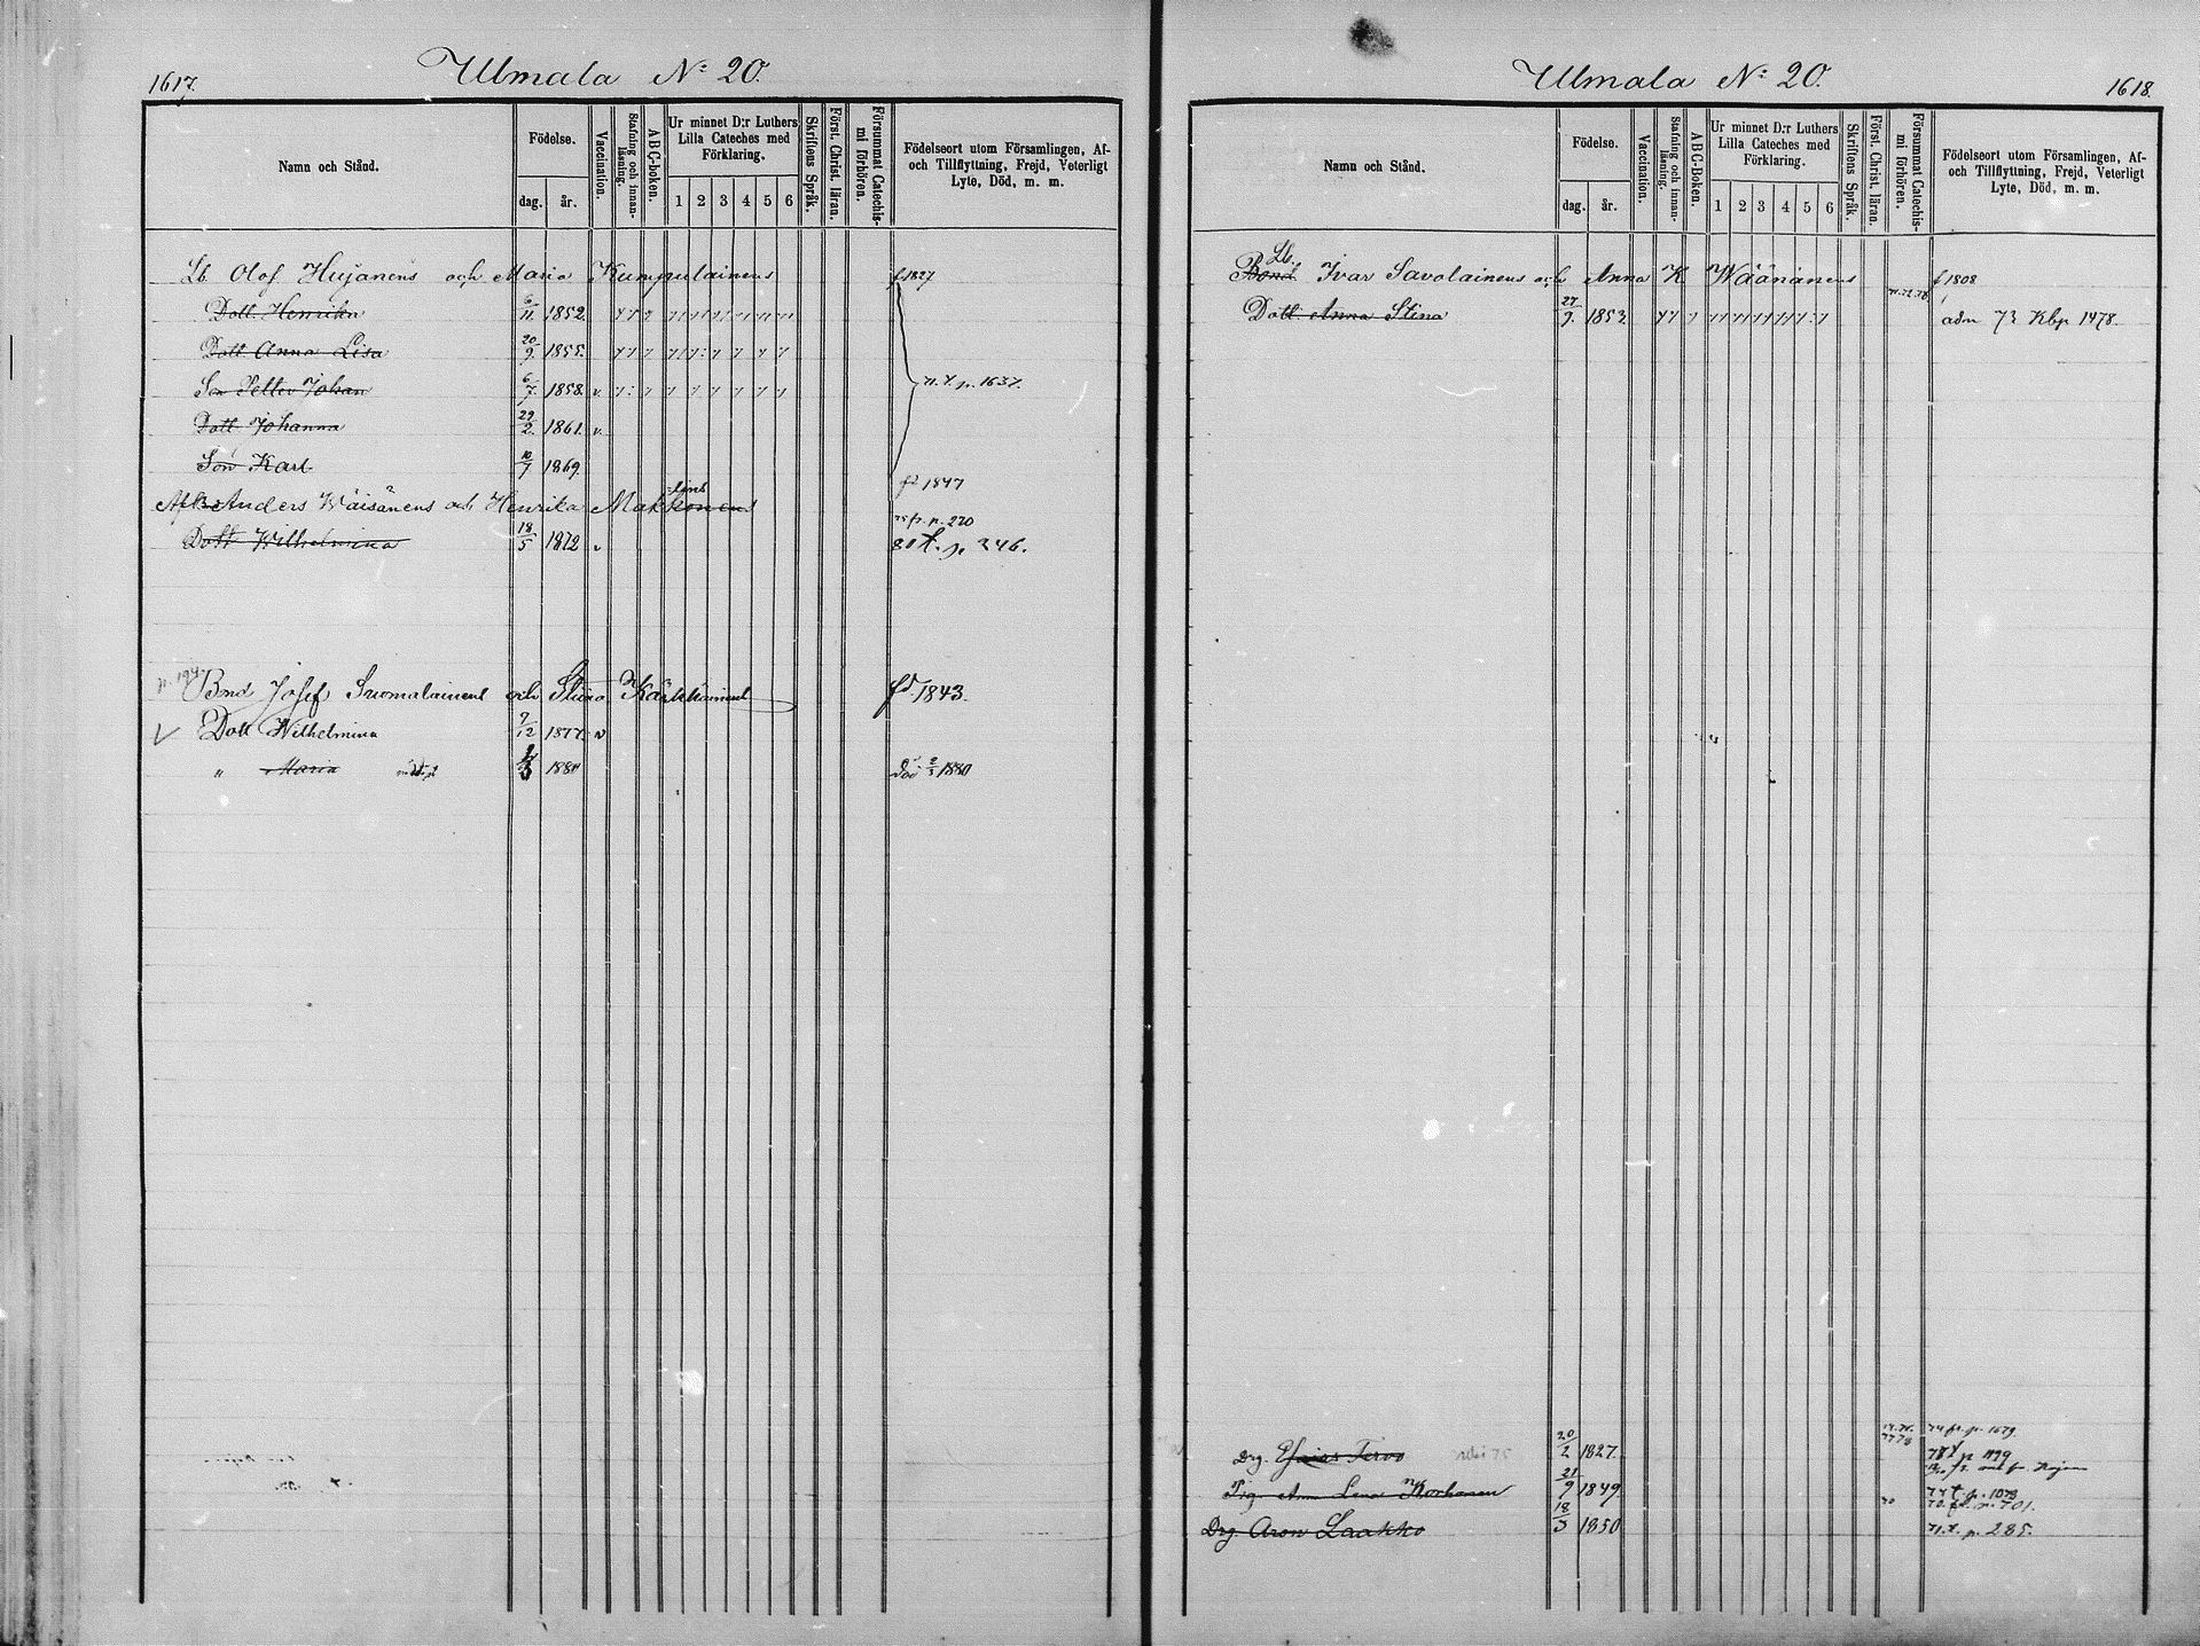 1617.
Ulmala № 20.
Namn och Stånd.
Födelse.
dag.
år.
Vaccination.
Stafning och innan-
läsning.
ABC-boken.
Ur minnet D:r Luthers
Lilla Cateches med
Förklaring.
1 2 3 4 5 6
Skriftens Språk.
Först. Christ. läran.
Försummat Catechis-
mi förhören.
Födelseort utom Församlingen, Af-
och Tillflyttning, Frejd, Veterligt
Lyte, Död, m. m.
Lb. Olof Hujanens och Maria Kumpulainens f 1827
Dott. Henrika 6/11 1852.
Dott Anna Lisa 20/9. 1855.
Son Petter Johan 6/7 1858. v. 71. t. p. 1637.
Dott. Johanna 29/2. 1861. v.
Son Karl 10/7 1869.
Anders Wäisänens och Henrika Makkonens fd 1847
75 fr. p. 270
Dott Wilhelmina 18/5 1872 v 80 t. p 346.
Bond Josef Suomalainens och Stina Kärkkäinens fd. 1843.
√ Dott Wilhelmina 7/12 1877. v
" Maria 1880 död 2/3 1880
Ulmala № 20.
1618.
Namn och Stånd.
Födelse.
dag.
år.
Vaccination.
Stafning och innan-
läsning.
ABC-Boken.
Ur minnet D:r Luthers
Lilla Cateches med
Förklaring.
1 2 3 4 5 6
Skriftens Språk.
Först. Christ. läran.
Försummat Catechis-
mi förhören.
Födelseort utom Församlingen, Af-
och Tillflyttning, Frejd, Veterligt
Lyte, Död, m. m.
Lb.
Bond. Ivar Savolainens och Anna K Wäänänens f 1808
Dott. Anna Stina 27/9. 1853. adm 73 Kbp 1478.
74 fr. p. 1679.
Drg. Esaias Tervo 20/2 1827. 78 t p 1199
Pig. Anna Lena Korhonen 21/9 1849 77 t. p. 1073
70. fr. p. 701.
Drg. Aron Laakko 18/3 1850 71. t. p. 285.